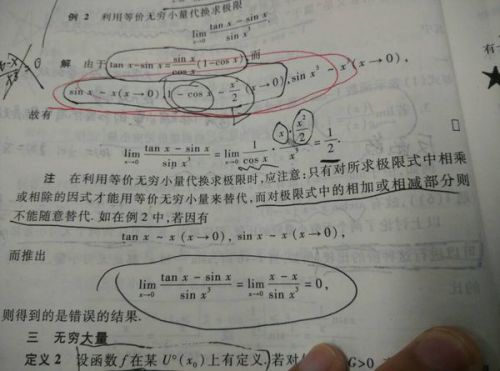 例 2 利用等价无穷小量代换求极限
lim x→0 (tan x − sin x) / sin x³
解 由于 tan x − sin x = (sin x / cos x)(1−cos x), 而
sin x ~ x (x→0), 1−cos x ~ x²/2 (x→0), sin x³ ~ x³ (x→0),
故有
lim x→0 (tan x − sin x) / sin x³ = lim x→0 (1 / cos x) · (x · x²/2) / x³ = 1/2.
注 在利用等价无穷小量代换求极限时,应注意:只有对所求极限式中相乘
或相除的因式才能用等价无穷小量来替代,而对极限式中的相加或相减部分则
不能随意替代. 如在例 2 中,若因有
tan x ~ x (x→0), sin x ~ x (x→0),
而推出
lim x→0 (tan x − sin x) / sin x³ = lim x→0 (x − x) / sin x³ = 0,
则得到的是错误的结果.
三 无穷大量
定义 2 设函数 f 在某 U°(x₀) 上有定义. 若对 G>0